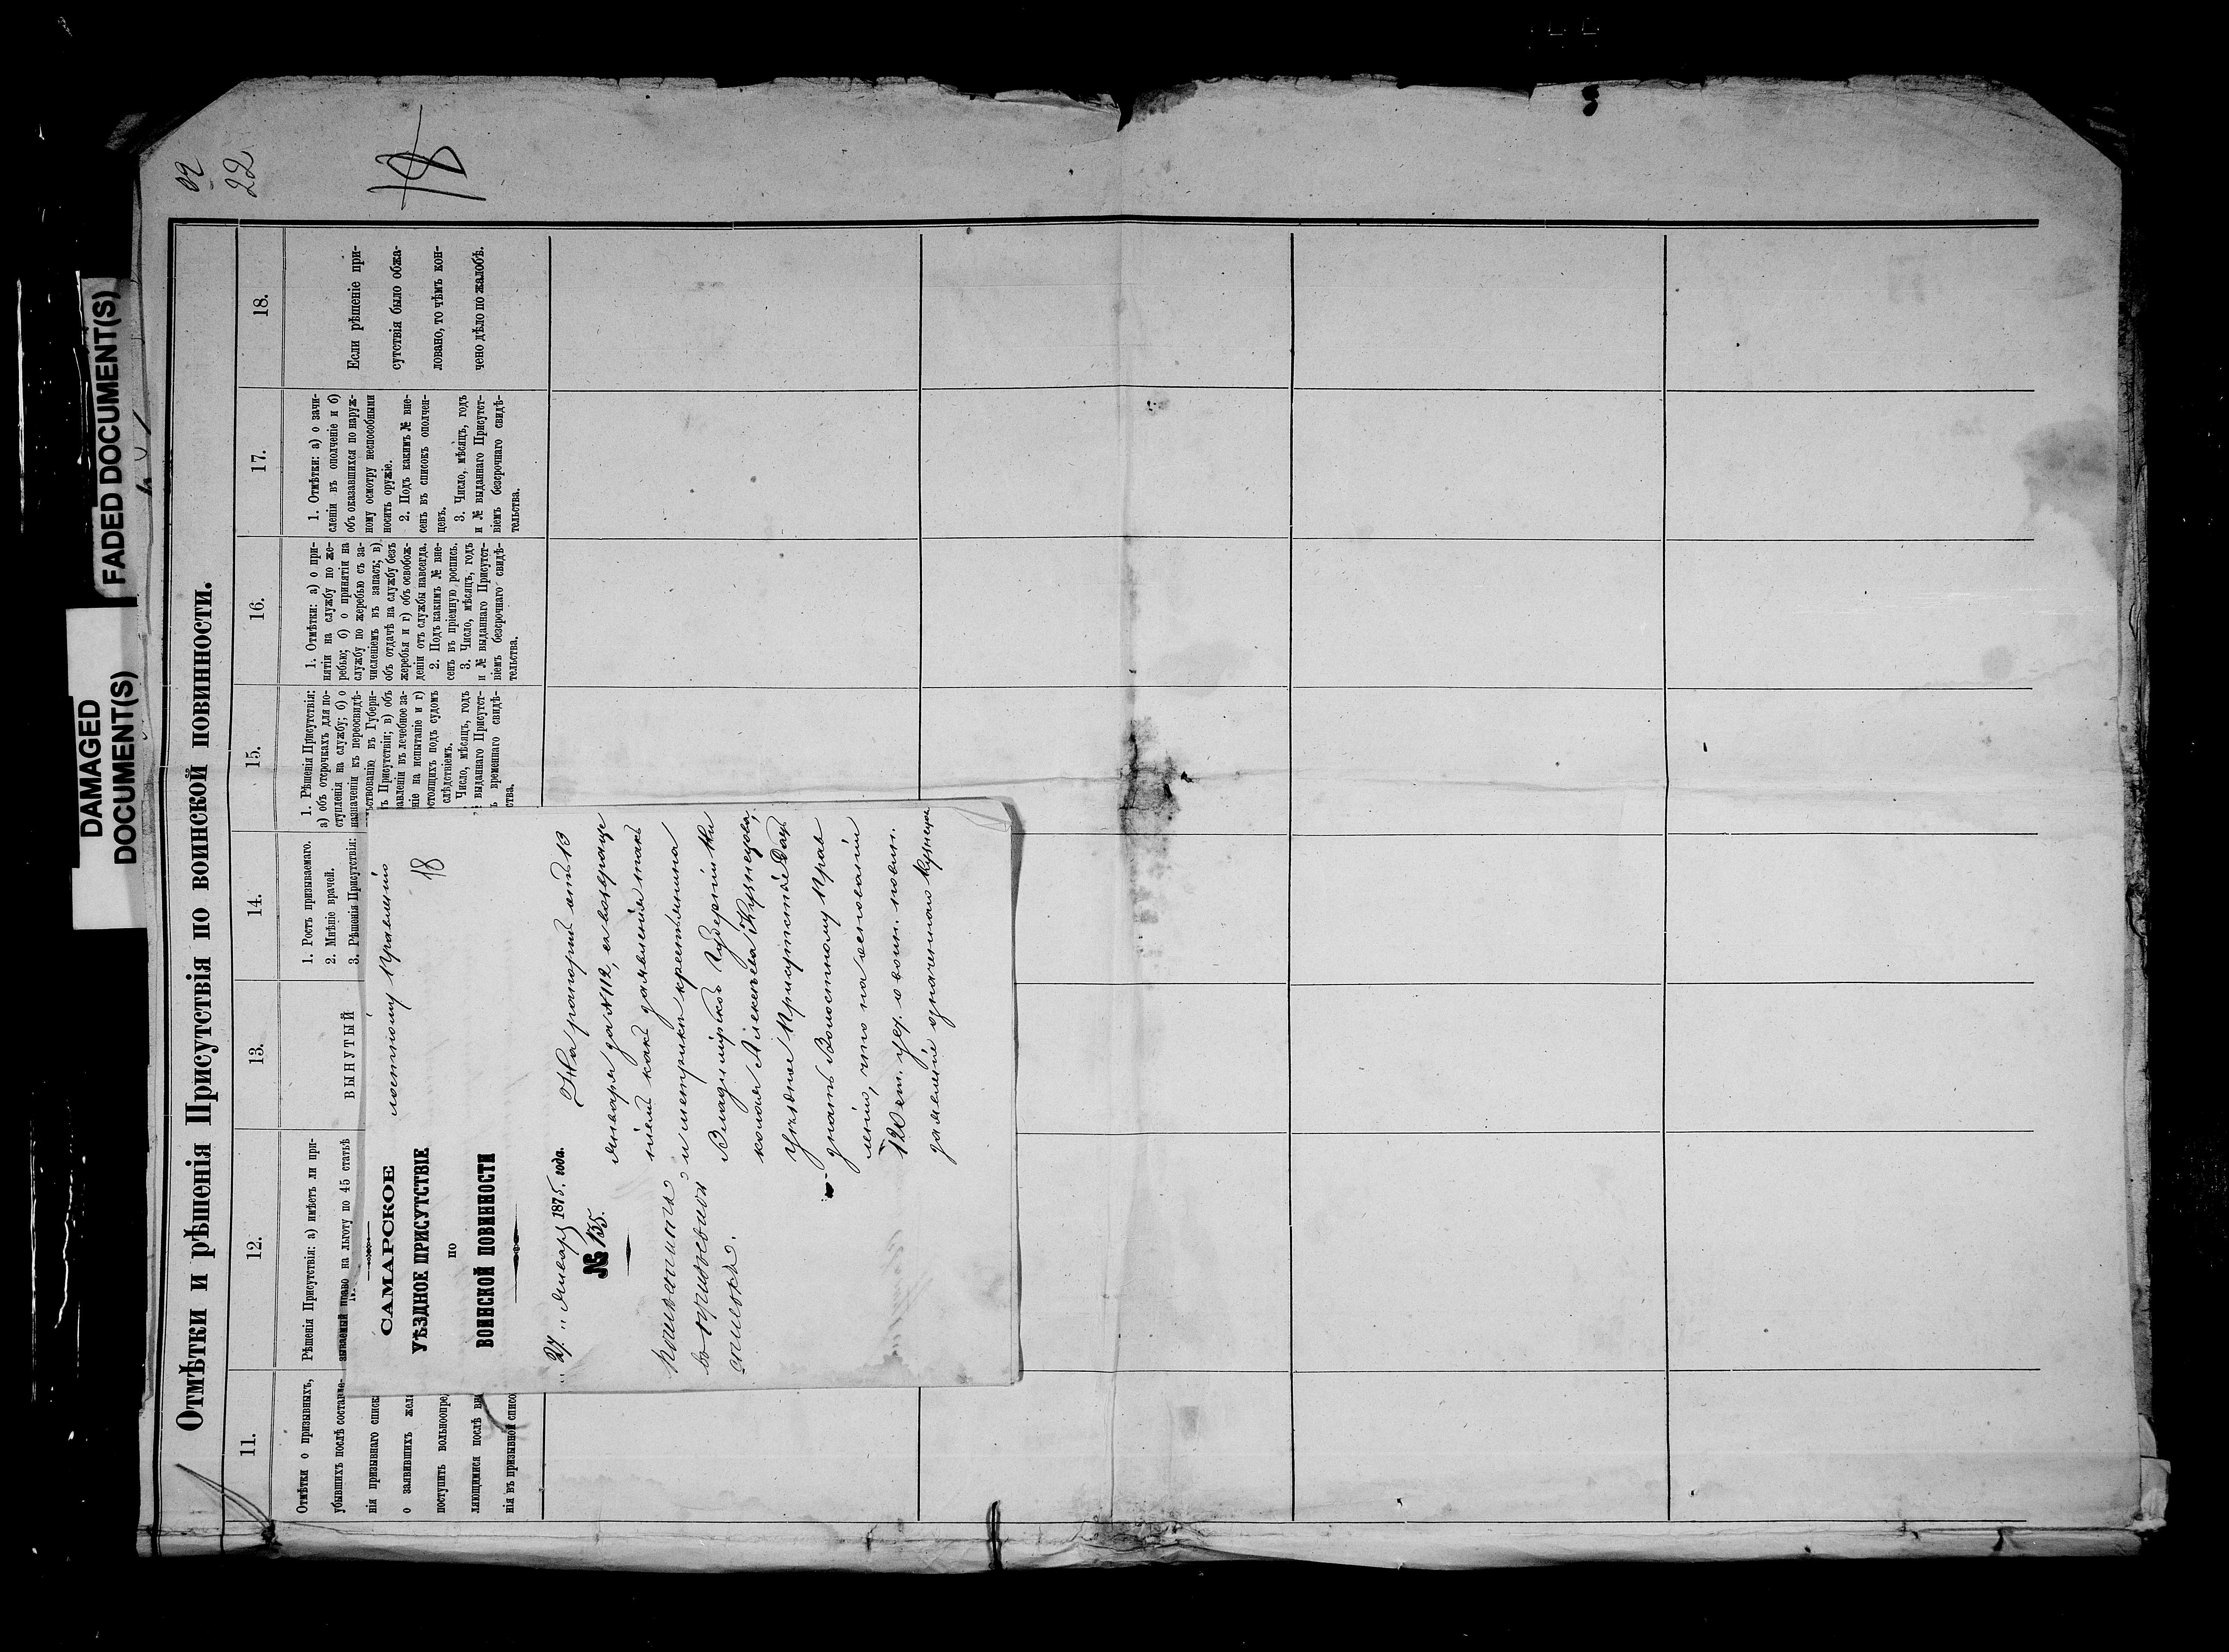 DAMAGED
DOCUMENT(S)
FADED DOCUMENT(S)
22
18
Отмѣтки и рѣшенія Присутствія по воинской повинности.
11.
12.
13.
14.
15.
16.
17.
18.
Отмѣтки о призывныхъ,
убывшихъ послѣ составле-
нія призывнаго списк
о заявившихъ жела
поступить вольноопре
ляющимися послѣ вн
нія въ призывной списо
Рѣшенія Присутствія: а) имѣетъ ли при-
зываемый право на льготу по 45 статьѣ
ВЫНУТЫЙ
1. Ростъ призываемаго.
2. Мнѣніе врачей.
3. Рѣшенія Присутствія:
1. Рѣшенія Присутствія:
а) объ отсрочкахъ для по-
ступленія на службу; б) о
назначеніи къ переосвидѣ-
тельствованію въ Губерн-
ъ Присутствіи; в) объ
авленіи въ лечебное за-
ніе на испытаніе и г)
стоящихъ подъ судомъ
слѣдствіемъ.
Число, мѣсяцъ, годъ
выданнаго Присутст-
ъ временнаго свидѣ-
ства.
1. Отмѣтки: а) о при-
нятіи на службу по же-
ребью; б) о принятіи на
службу по жеребью съ за-
численіемъ въ запасъ; в)
объ отдачѣ на службу безъ
жеребья и г) объ освобож-
деніи отъ службы навсегда.
2. Подъ какимъ № вне-
сенъ въ пріемную роспись.
3. Число, мѣсяцъ, годъ
и № выданнаго Присутст-
віемъ безсрочнаго свидѣ-
тельства.
1. Отмѣтки: а) о зачи-
сленіи въ ополченіе и б)
объ оказавшихся по наруж-
ному осмотру неспособными
носить оружіе.
2. Подъ какимъ № вне-
сенъ въ списокъ ополчен-
цевъ.
3. Число, мѣсяцъ, годъ
и № выданнаго Присутст-
віемъ безсрочнаго свидѣ-
тельства.
Если рѣшеніе при-
сутствія было обжа-
ловано, то чѣмъ кон-
чено дѣло по жалобѣ.
САМАРСКОЕ
УѢЗДНОЕ ПРИСУТСТВІЕ
ПО
ВОИНСКОЙ ПОВИННОСТИ
„27„ Января 1875. года.
№ 135.
въ призывной
списокъ.
лостному Правленію
18
На рапортъ отъ 13
Января за №112, съ возвраще
ніемъ какъ заявленія такъ
и метрики крестьянина
Владимірской Губерніи Ни
колая Алексѣева Кузнецова,
Уѣздное Присутствіе даетъ
знать Волостному Прав
ленію, что на основаніи
120 ст. уст. о воин. повин.
заявленіе означеннаго Кузнецова